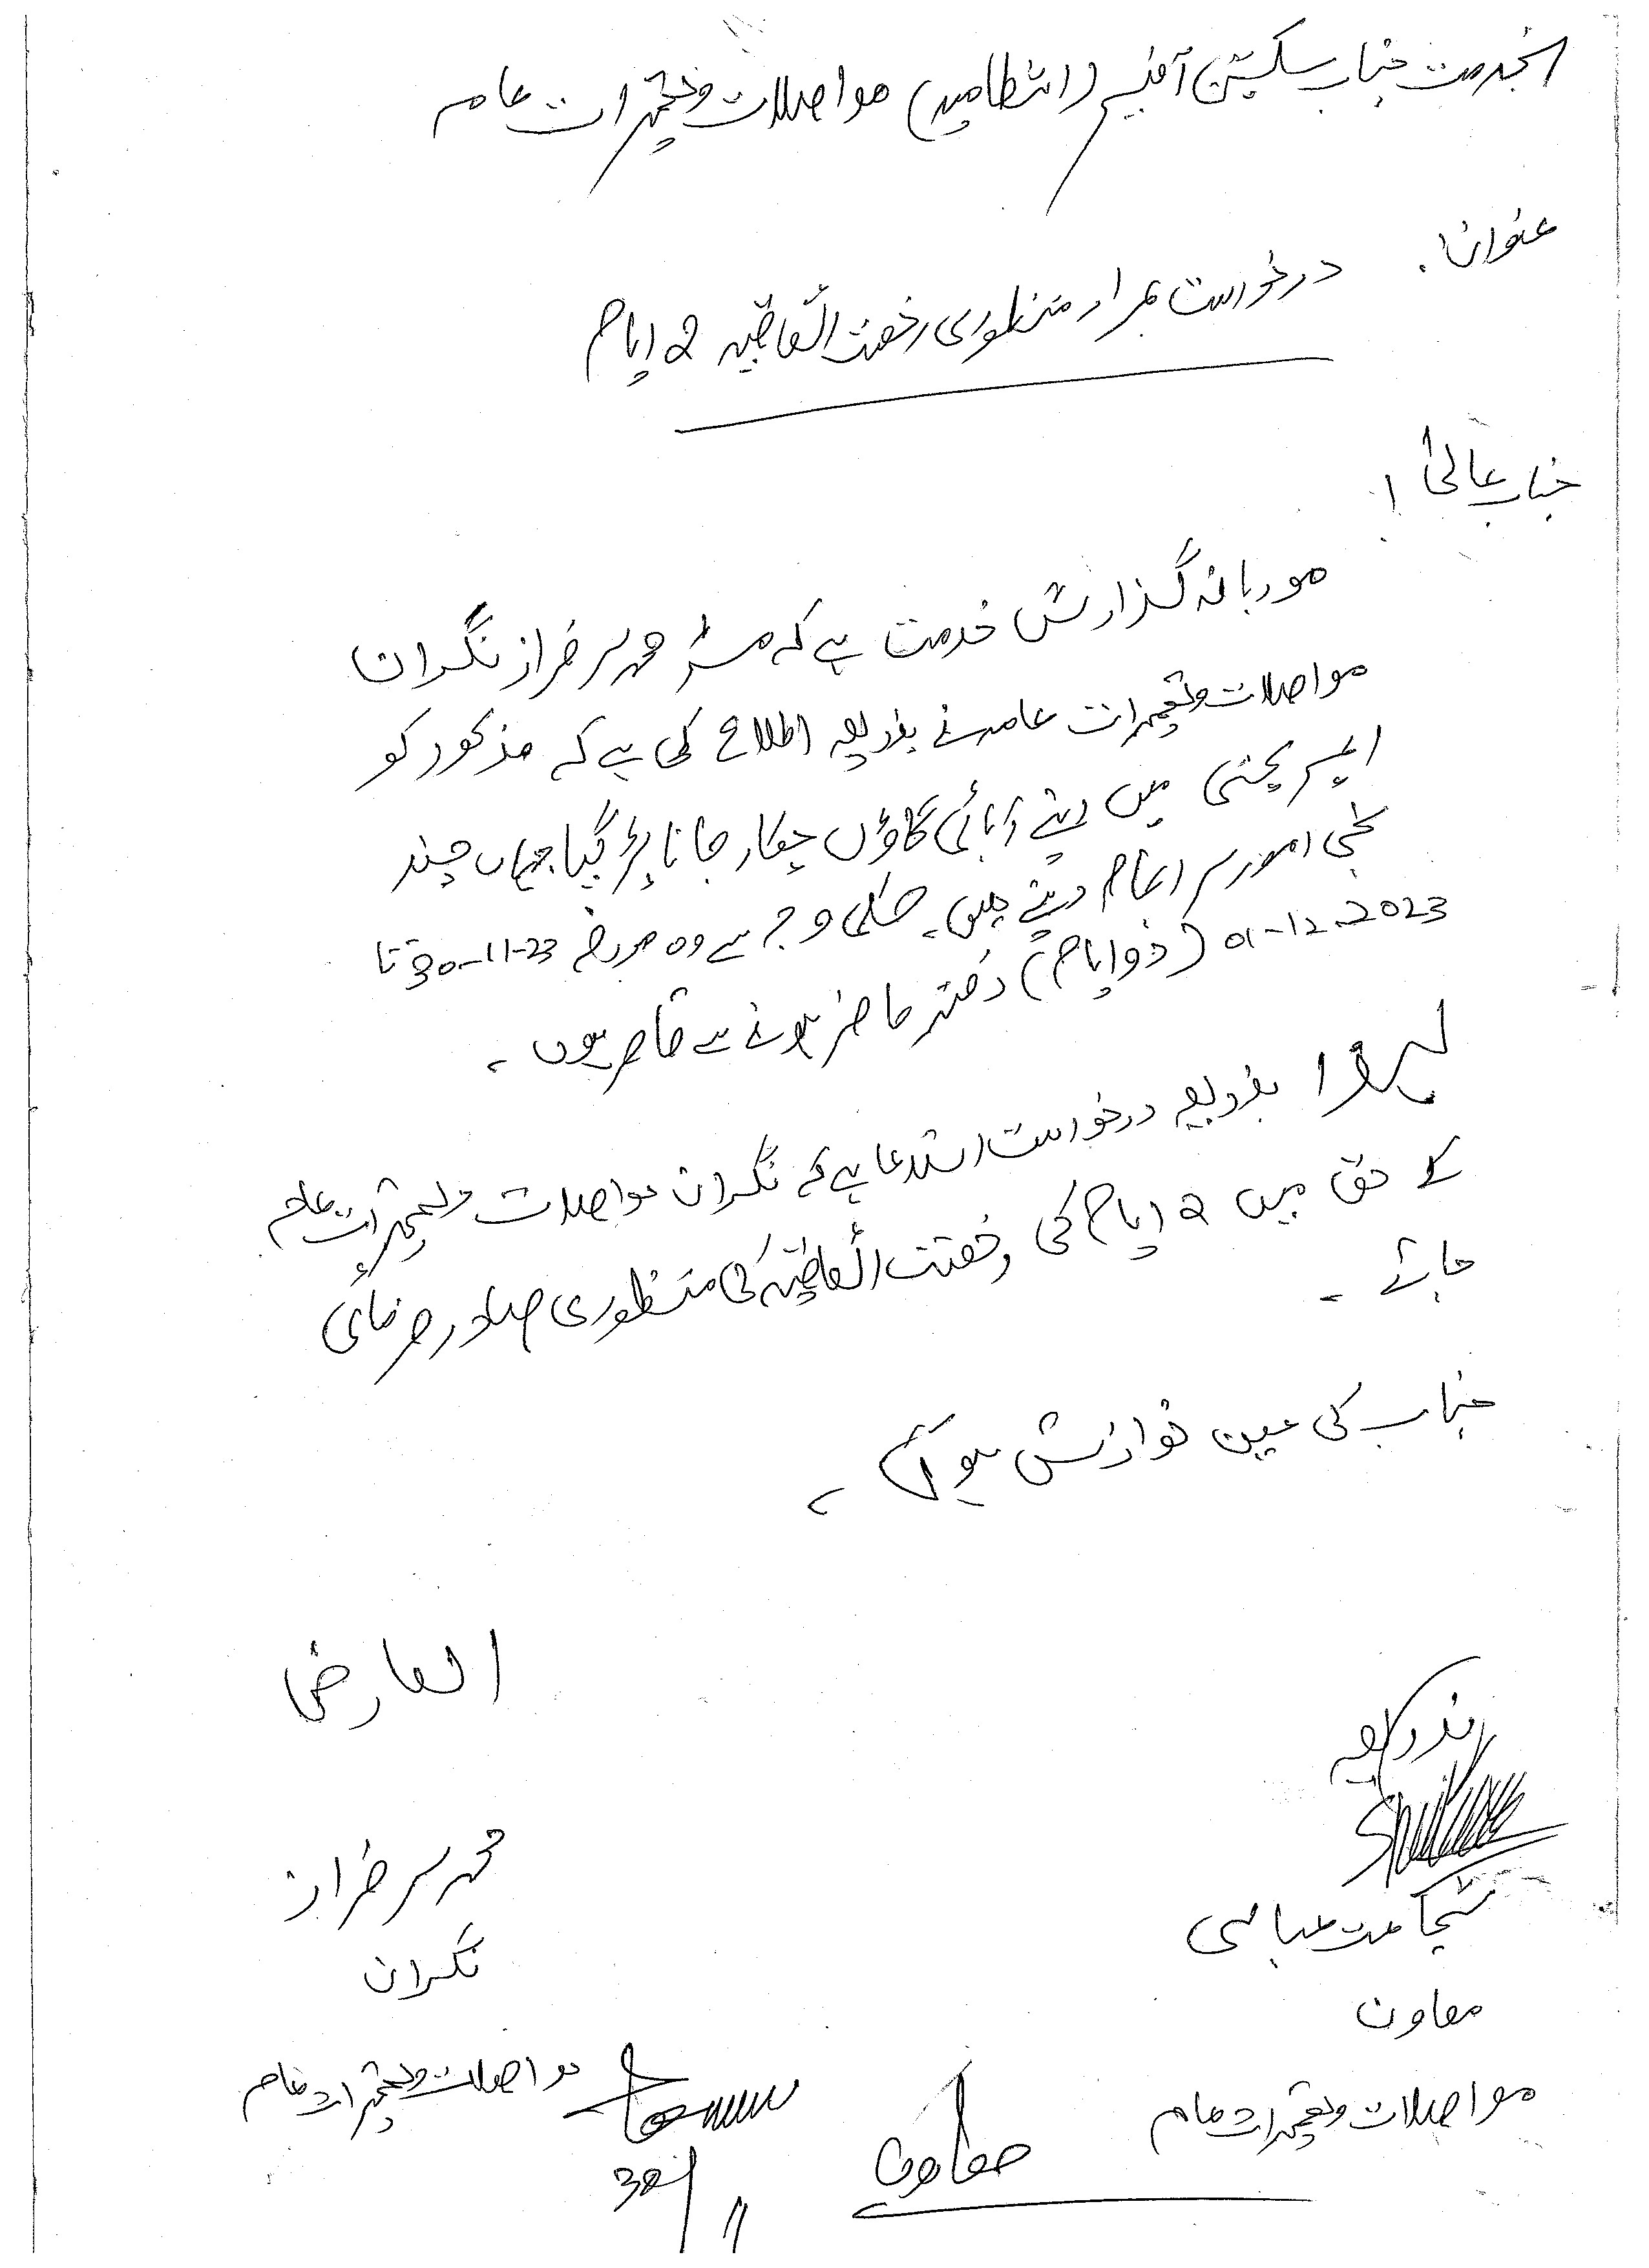 بخدمت جناب سیکشن آفیسر (انتظامیہ) مواصلات وتعمیرات عامہ
عنوان:
درخواست بمراد منظوری رخصت اتفاقیہ 2 ایام
جناب عالی!
مودبانہ گذارش خدمت ہے کہ مسٹر محمد سرفراز نگران
مواصلات وتعمیرات عامہ نے بذریعہ اطلاع کی ہے کہ مذکور کو
ایمرجنسی میں اپنے آبائی گاؤں چکار جانا پڑ گیا جہاں چند
نجی امور سر انجام دینے ہیں۔ جسکی وجہ سے وہ مورخہ 30-11-23 تا
01-12-2023 (دو ایام) دفتر حاضر ہونے سے قاصر ہوں۔
لہذا بذریعہ درخواست استدعا ہے کہ نگران مواصلات وتعمیرات عامہ
کے حق میں 2 ایام کی رخصت اتفاقیہ کی منظوری صادر فرمائی
جائے۔
جناب کی عین نوازش ہو گی۔
العارض
بذریعہ
محمد سرفراز
شجاعت عباسی
نگران
معاون
مواصلات وتعمیرات عامہ
مواصلات وتعمیرات عامہ
معاون
30/11